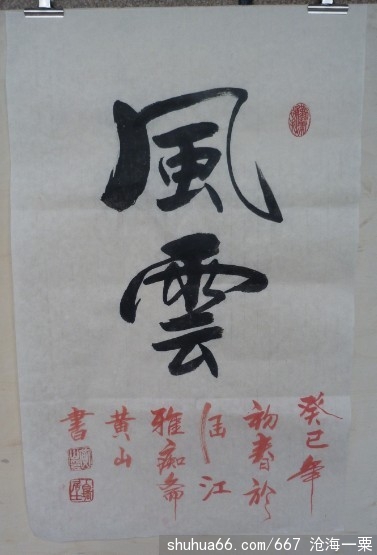 風雲
癸巳年
初春於
涵江
雅痴斋
黄山
書
shuhua66.com/667 沧海一粟